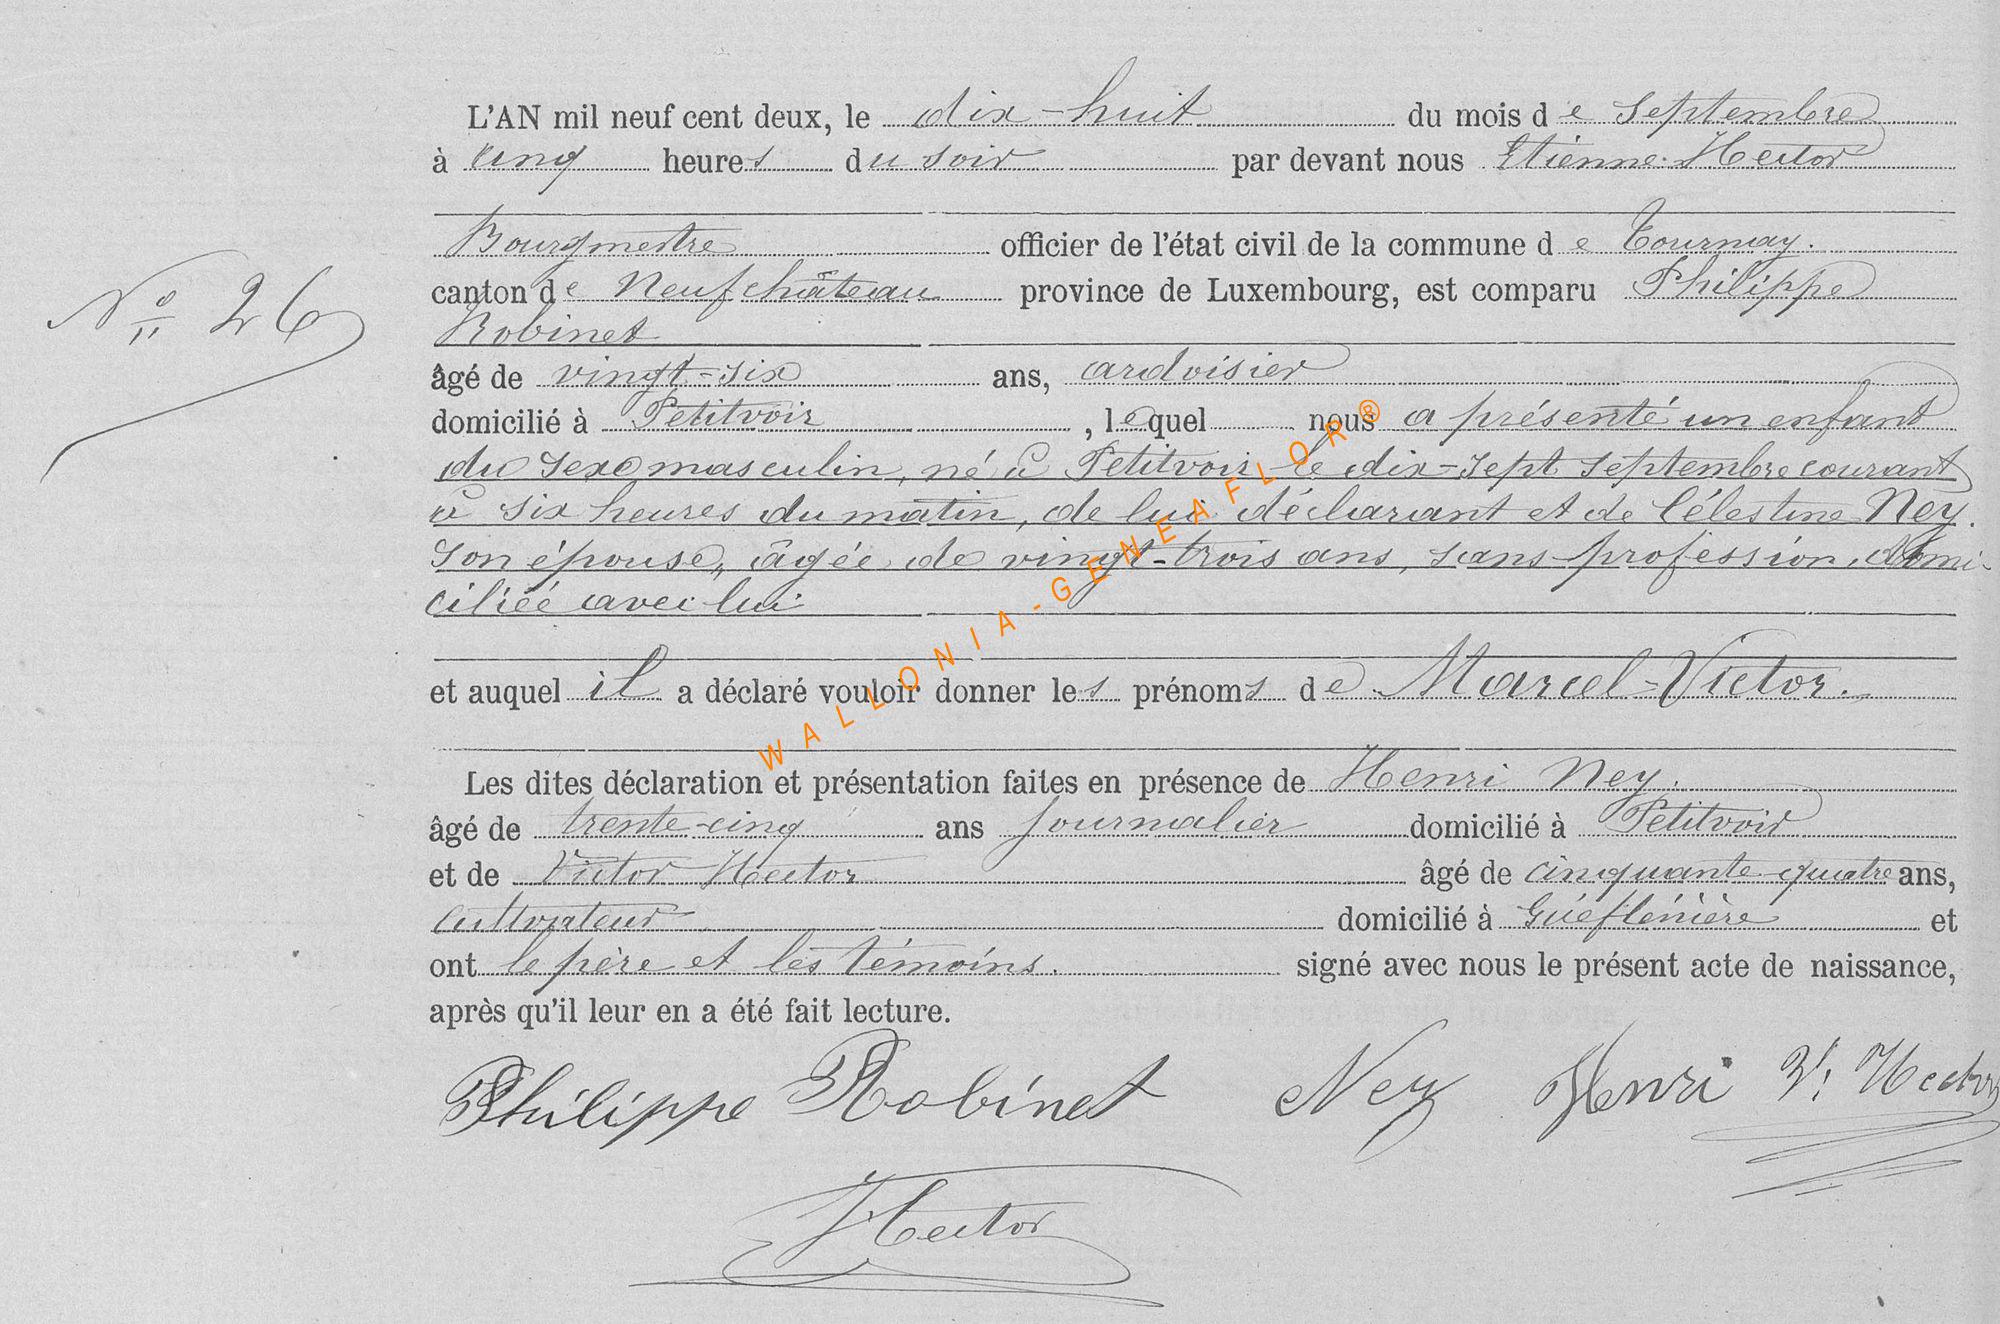 L'AN mil neuf cent deux, le dix-huit du mois de septembre
à cinq heures du soir par devant nous Etienne Hector
Bourgmestre officier de l'état civil de la commune de Tournay.
N° 26
canton de Neufchâteau province de Luxembourg, est comparu Philippe
Robinet
âgé de vingt-six ans, ardoisier
domicilié à Petitvoir, lequel nous a présenté un enfant
du sexe masculin, né à Petitvoir le dix-sept septembre courant
à six heures du matin, de lui déclarant et de Célestine Ney.
son épouse, âgée de vingt-trois ans, sans profession, domi-
ciliée avec lui
et auquel il a déclaré vouloir donner les prénoms de Marcel-Victor.
WALLONIA-GENEAFLOR®
Les dites déclaration et présentation faites en présence de Henri Ney.
âgé de trente-cinq ans journalier domicilié à Petitvoir
et de Victor Hector âgé de cinquante-quatre ans,
cultivateur domicilié à et
ont le père et les témoins. signé avec nous le présent acte de naissance,
après qu'il leur en a été fait lecture.
Philippe Robinet Ney Henri V. Hector
Hector